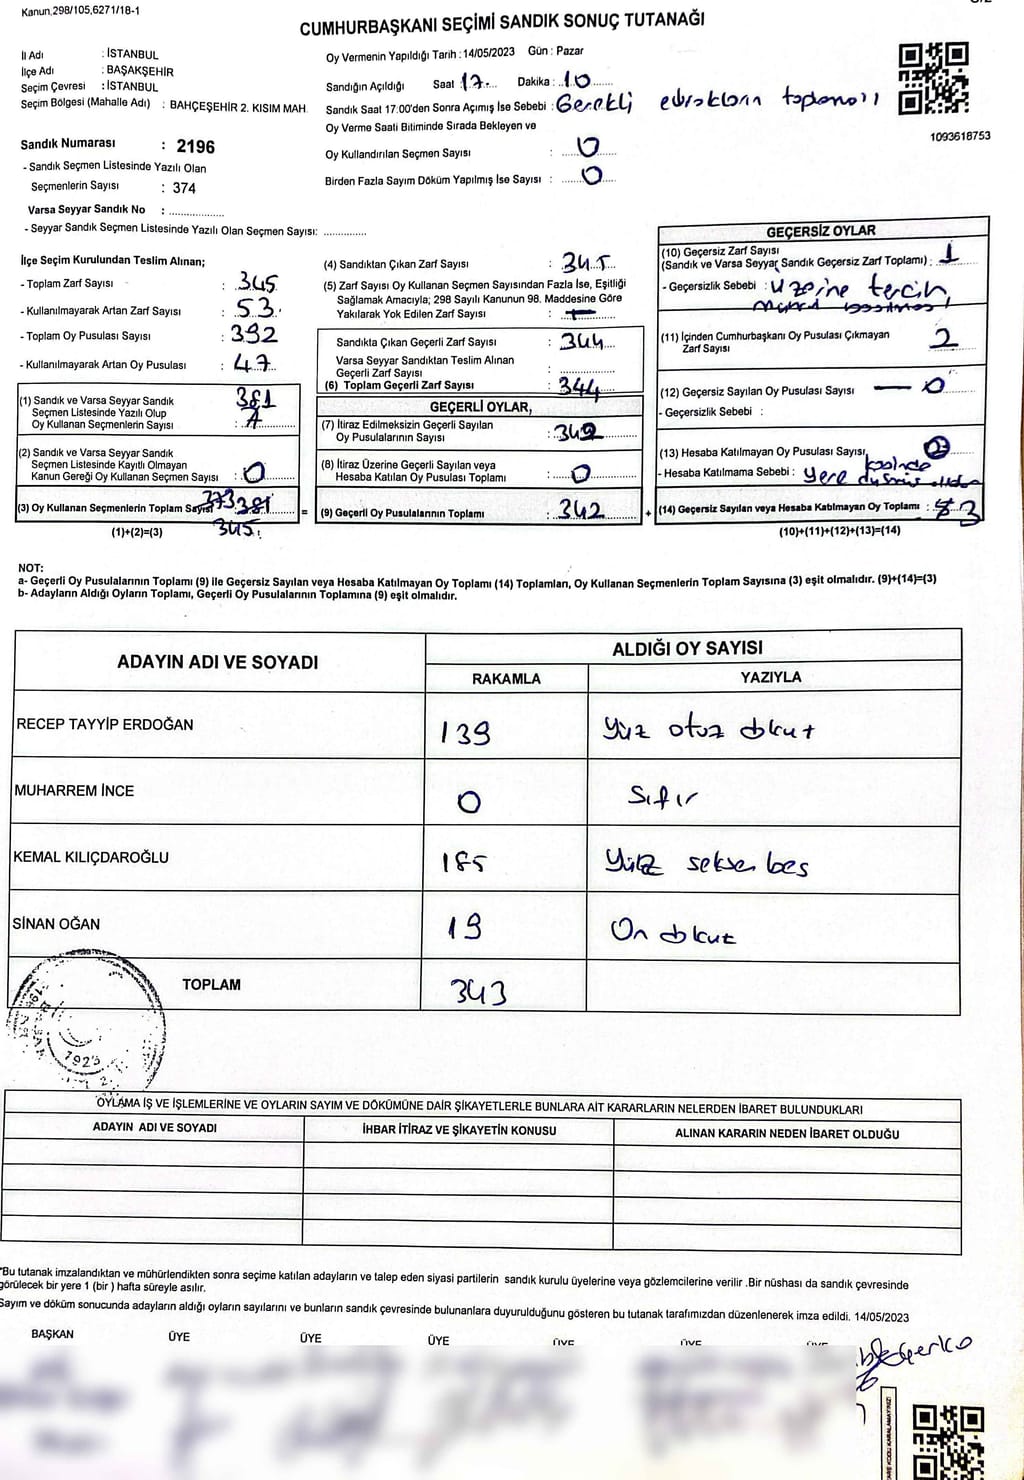 Kanun,298/105,6271/18-1
CUMHURBAŞKANI SEÇİMİ SANDIK SONUÇ TUTANAĞI
İl Adı : İSTANBUL
İlçe Adı : BAŞAKŞEHİR
Seçim Çevresi : İSTANBUL
Seçim Bölgesi (Mahalle Adı) : BAHÇEŞEHİR 2. KISIM MAH.
Oy Vermenin Yapıldığı Tarih : 14/05/2023 Gün : Pazar
Sandığın Açıldığı Saat 17 Dakika : 10
Sandık Saat 17.00'den Sonra Açımış İse Sebebi : Gerekli evrakların toplanması
Oy Verme Saati Bitiminde Sırada Bekleyen ve
Oy Kullandırılan Seçmen Sayısı : 0
Birden Fazla Sayım Döküm Yapılmış İse Sayısı : 0
1093618753
Sandık Numarası : 2196
- Sandık Seçmen Listesinde Yazılı Olan
Seçmenlerin Sayısı : 374
Varsa Seyyar Sandık No :
- Seyyar Sandık Seçmen Listesinde Yazılı Olan Seçmen Sayısı:
İlçe Seçim Kurulundan Teslim Alınan;
- Toplam Zarf Sayısı : 345
- Kullanılmayarak Artan Zarf Sayısı : 53
- Toplam Oy Pusulası Sayısı : 392
- Kullanılmayarak Artan Oy Pusulası : 47
(1) Sandık ve Varsa Seyyar Sandık
Seçmen Listesinde Yazılı Olup
Oy Kullanan Seçmenlerin Sayısı : 381
(2) Sandık ve Varsa Seyyar Sandık
Seçmen Listesinde Kayıtlı Olmayan
Kanun Gereği Oy Kullanan Seçmen Sayısı : 0
(3) Oy Kullanan Seçmenlerin Toplam Sayısı 373 381
(1)+(2)=(3) 345
(4) Sandıktan Çıkan Zarf Sayısı : 345
(5) Zarf Sayısı Oy Kullanan Seçmen Sayısından Fazla İse, Eşitliği
Sağlamak Amacıyla; 298 Sayılı Kanunun 98. Maddesine Göre
Yakılarak Yok Edilen Zarf Sayısı :
Sandıkta Çıkan Geçerli Zarf Sayısı : 344
Varsa Seyyar Sandıktan Teslim Alınan
Geçerli Zarf Sayısı :
(6) Toplam Geçerli Zarf Sayısı : 344
GEÇERLİ OYLAR,
(7) İtiraz Edilmeksizin Geçerli Sayılan
Oy Pusulalarının Sayısı : 342
(8) İtiraz Üzerine Geçerli Sayılan veya
Hesaba Katılan Oy Pusulası Toplamı : 0
= (9) Geçerli Oy Pusulalarının Toplamı : 342
GEÇERSİZ OYLAR
(10) Geçersiz Zarf Sayısı
(Sandık ve Varsa Seyyar Sandık Geçersiz Zarf Toplamı) : 1
- Geçersizlik Sebebi : Üzerine tercih
(11) İçinden Cumhurbaşkanı Oy Pusulası Çıkmayan
Zarf Sayısı 2
(12) Geçersiz Sayılan Oy Pusulası Sayısı — 0
- Geçersizlik Sebebi :
(13) Hesaba Katılmayan Oy Pusulası Sayısı
- Hesaba Katılmama Sebebi : yere
+ (14) Geçersiz Sayılan veya Hesaba Katılmayan Oy Toplamı : 3
(10)+(11)+(12)+(13)=(14)
NOT:
a- Geçerli Oy Pusulalarının Toplamı (9) ile Geçersiz Sayılan veya Hesaba Katılmayan Oy Toplamı (14) Toplamları, Oy Kullanan Seçmenlerin Toplam Sayısına (3) eşit olmalıdır. (9)+(14)=(3)
b- Adayların Aldığı Oyların Toplamı, Geçerli Oy Pusulalarının Toplamına (9) eşit olmalıdır.
ADAYIN ADI VE SOYADI
ALDIĞI OY SAYISI
RAKAMLA YAZIYLA
RECEP TAYYİP ERDOĞAN 139 Yüz otuz dokuz
MUHARREM İNCE 0 Sıfır
KEMAL KILIÇDAROĞLU 185 Yüz seksen beş
SİNAN OĞAN 19 On dokuz
TOPLAM 343
1923
OYLAMA İŞ VE İŞLEMLERİNE VE OYLARIN SAYIM VE DÖKÜMÜNE DAİR ŞİKAYETLERLE BUNLARA AİT KARARLARIN NELERDEN İBARET BULUNDUKLARI
ADAYIN ADI VE SOYADI İHBAR İTİRAZ VE ŞİKAYETİN KONUSU ALINAN KARARIN NEDEN İBARET OLDUĞU
*Bu tutanak imzalandıktan ve mühürlendikten sonra seçime katılan adayların ve talep eden siyasi partilerin sandık kurulu üyelerine veya gözlemcilerine verilir .Bir nüshası da sandık çevresinde
görülecek bir yere 1 (bir ) hafta süreyle asılır.
Sayım ve döküm sonucunda adayların aldığı oyların sayılarını ve bunların sandık çevresinde bulunanlara duyurulduğunu gösteren bu tutanak tarafımızdan düzenlenerek imza edildi. 14/05/2023
BAŞKAN ÜYE ÜYE ÜYE ÜYE ÜYE ÜYE